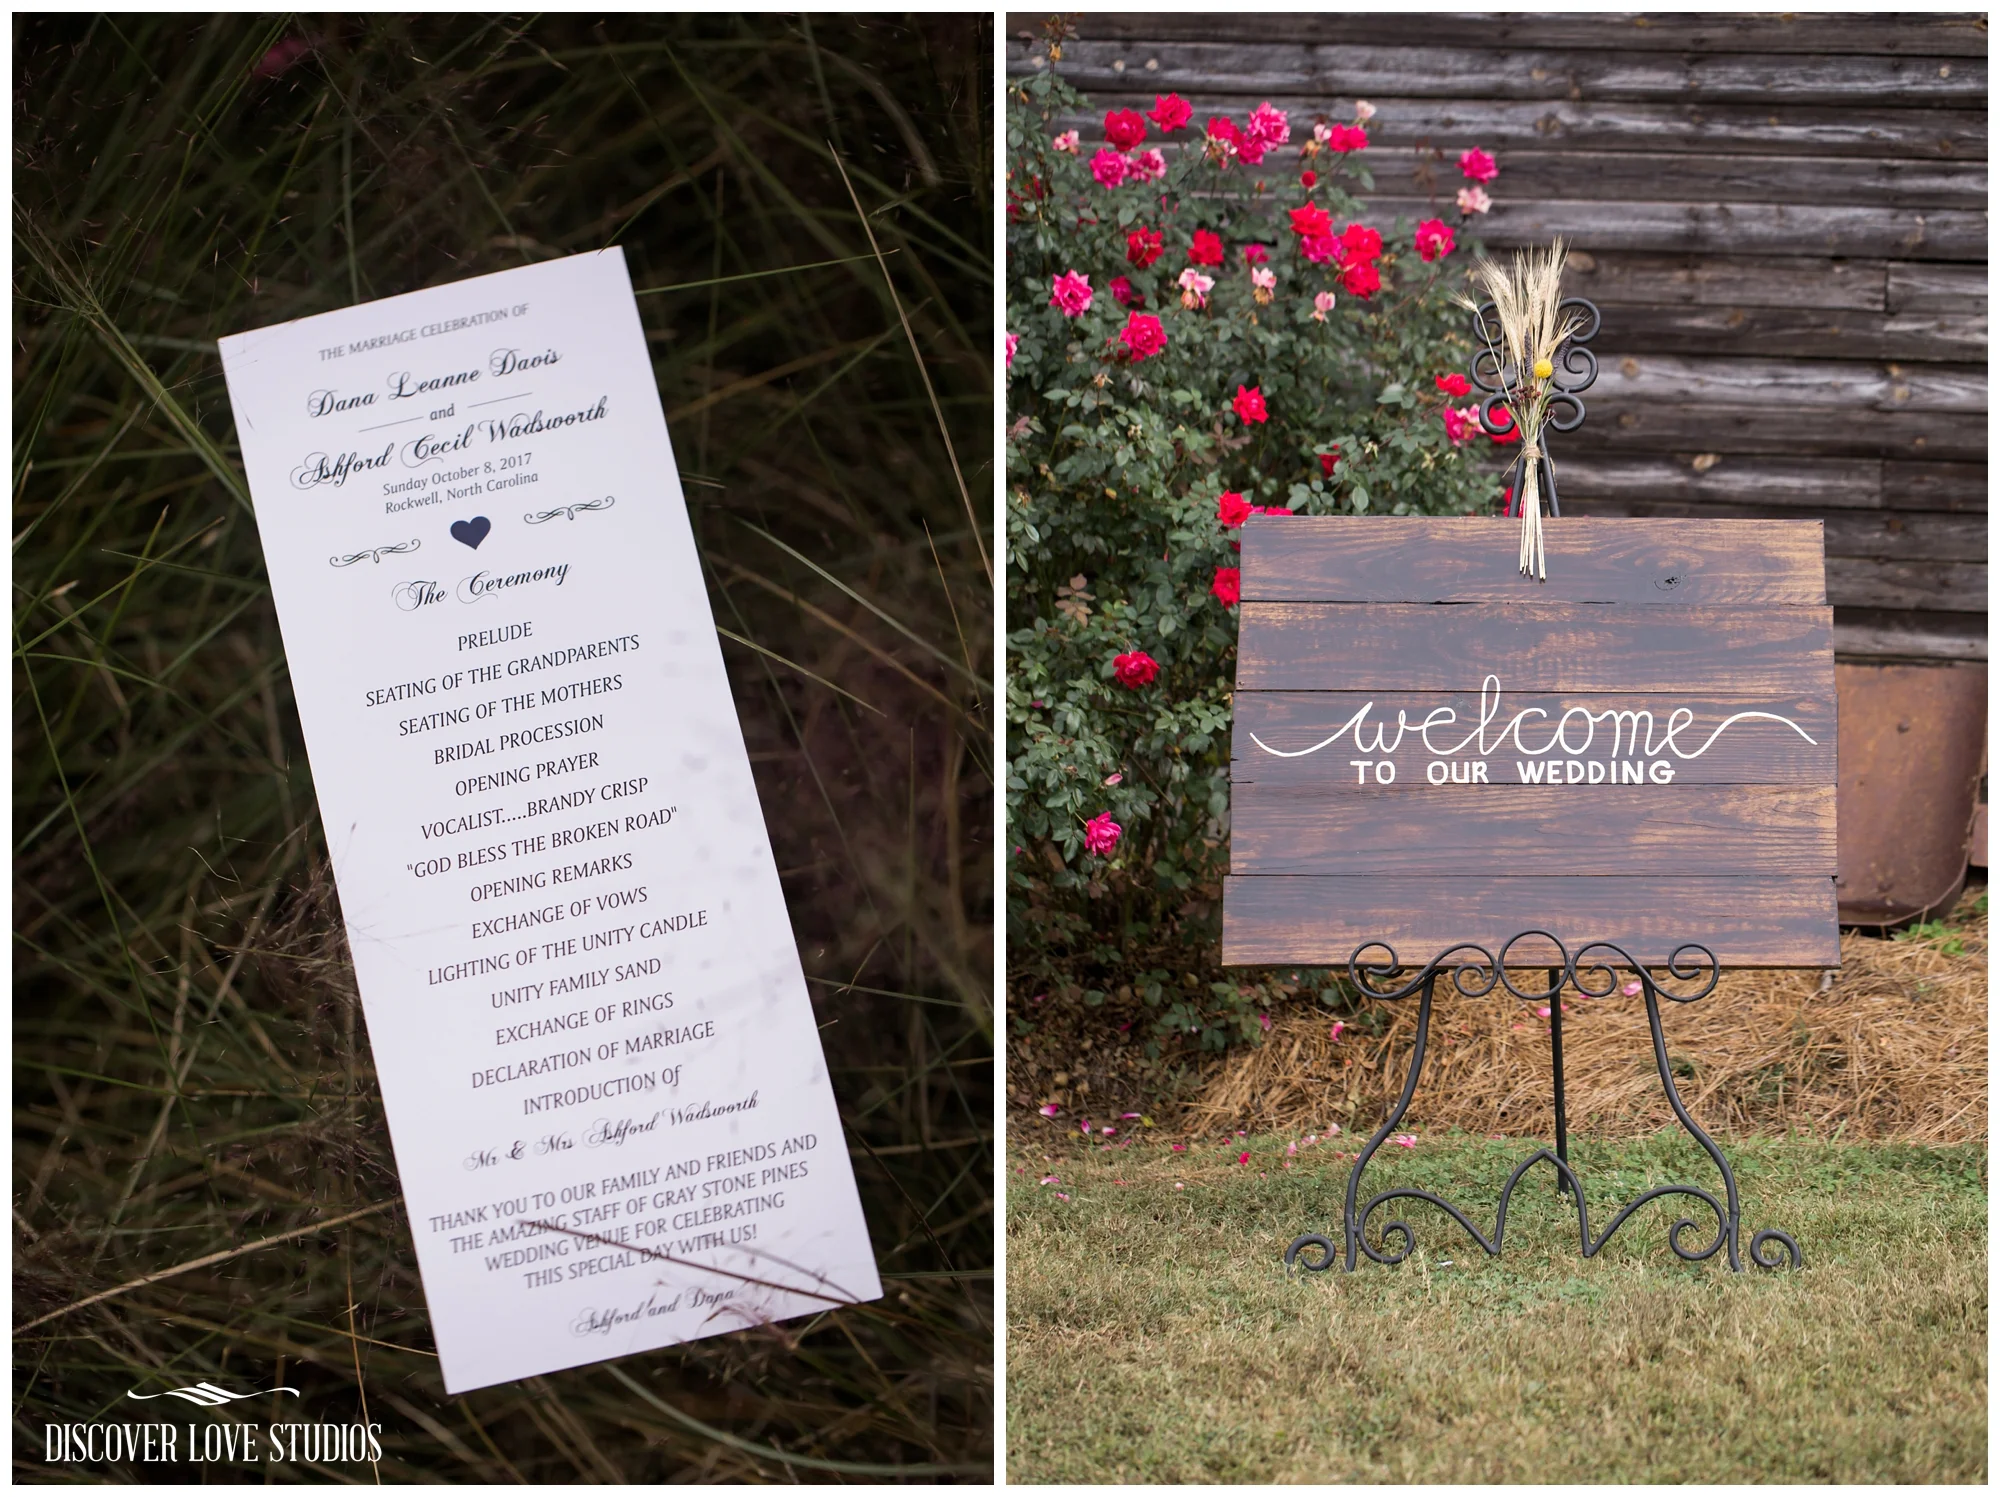 THE MARRIAGE CELEBRATION OF
Dana Leanne Davis
and
Ashford Cecil Wadsworth
Sunday October 8, 2017
Rockwell, North Carolina
The Ceremony
PRELUDE
SEATING OF THE GRANDPARENTS
SEATING OF THE MOTHERS
BRIDAL PROCESSION
OPENING PRAYER
VOCALIST.....BRANDY CRISP
"GOD BLESS THE BROKEN ROAD"
OPENING REMARKS
EXCHANGE OF VOWS
LIGHTING OF THE UNITY CANDLE
UNITY FAMILY SAND
EXCHANGE OF RINGS
DECLARATION OF MARRIAGE
INTRODUCTION Of
Mr & Mrs Ashford Wadsworth
THANK YOU TO OUR FAMILY AND FRIENDS AND
THE AMAZING STAFF OF GRAY STONE PINES
WEDDING VENUE FOR CELEBRATING
THIS SPECIAL DAY WITH US!
Ashford and Dana
DISCOVER LOVE STUDIOS
welcome
TO OUR WEDDING